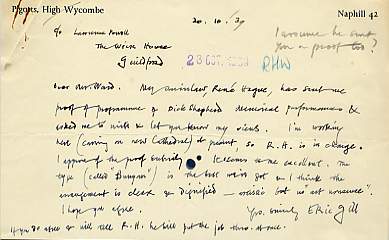 Pigotts, High Wycombe
Naphill 42
20.10.39
I assume he sent
you a proof too?
c/o Lawrence Powell
The Work House
Guildford
23 OCT 1939
RHW
Dear Mr. Ward. My son-in-law, René Hague, has sent me
proof of programme of Dick Sheppard memorial performances &
asked me to write & let you know my views. I'm working
here (carving on new Cathedral) at present, so R.H. is in charge.
I approve of the proof entirely. It seems to me excellent. The
type (called 'Bunyan') is the best we've got & I think the
arrangement is clear & dignified — artistic but not "art nonsense".
I hope you agree.
Yrs. sincerely Eric Gill
If you do agree & will tell R.H. he will put the job thro. at once.